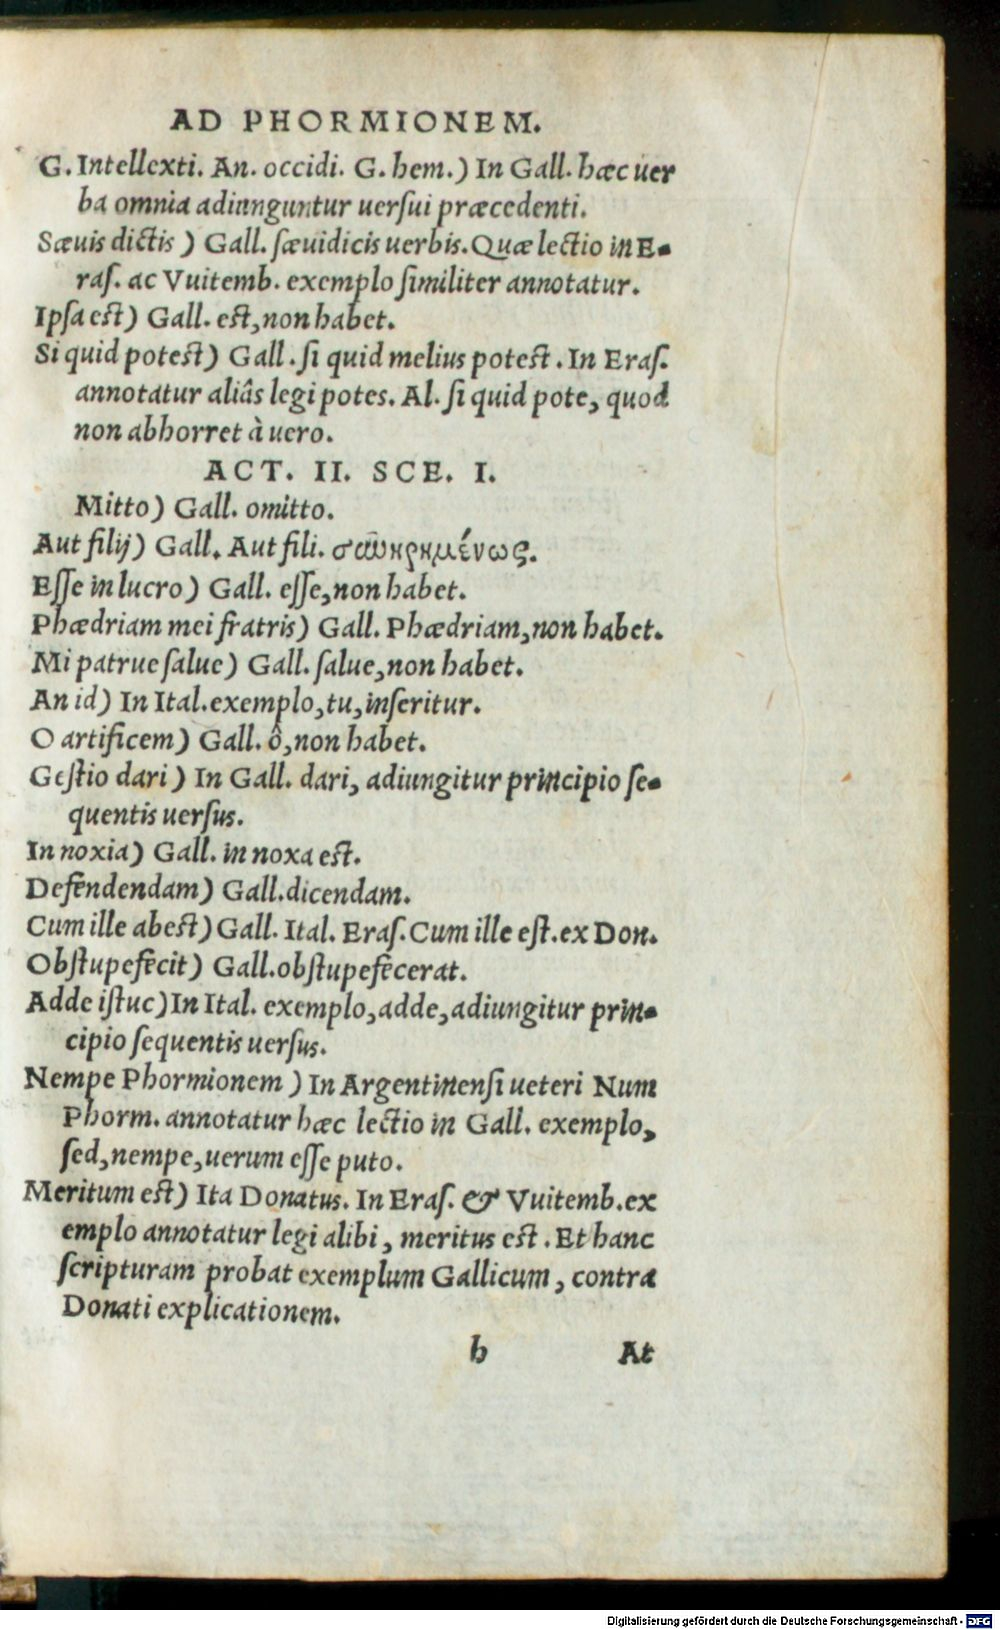 AD PHORMIONEM.
G. Intellexti. An. occidi. G. hem.) In Gall. hæc uer
ba omnia adiunguntur uersui præcedenti.
Sæuis dictis) Gall. sæuidicis uerbis. Quæ lectio in E-
ras. ac Vuitemb. exemplo similiter annotatur.
Ipsa est) Gall. est, non habet.
Si quid potest) Gall. si quid melius potest. In Eras.
annotatur aliâs legi potes. Al. si quid pote, quod
non abhorret à uero.
ACT. II. SCE. I.
Mitto) Gall. omitto.
Aut filij) Gall. Aut fili. συνῃρημένως.
Esse in lucro) Gall. esse, non habet.
Phædriam mei fratris) Gall. Phædriam, non habet.
Mi patrue salue) Gall. salue, non habet.
An id) In Ital. exemplo, tu, inseritur.
O artificem) Gall. ô, non habet.
Gestio dari) In Gall. dari, adiungitur principio se-
quentis uersus.
In noxia) Gall. in noxa est.
Defendendam) Gall. dicendam.
Cum ille abest) Gall. Ital. Eras. Cum ille est. ex Don.
Obstupefecit) Gall. obstupefecerat.
Adde istuc) In Ital. exemplo, adde, adiungitur prin-
cipio sequentis uersus.
Nempe Phormionem) In Argentinensi ueteri Num
Phorm. annotatur hæc lectio in Gall. exemplo,
sed, nempe, uerum esse puto.
Meritum est) Ita Donatus. In Eras. & Vuitemb. ex
emplo annotatur legi alibi, meritus est. Et hanc
scripturam probat exemplum Gallicum, contra
Donati explicationem.
b At
Digitalisierung gefördert durch die Deutsche Forschungsgemeinschaft - DFG